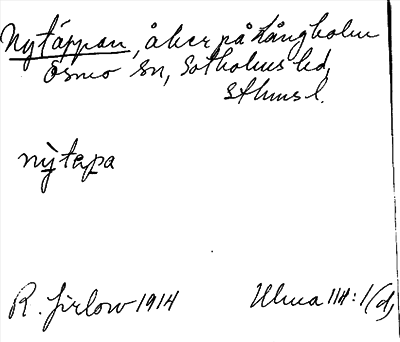 Nytäppan, åker på Långholm
Ösmo sn, Sotholms hd,
Sthms l.
nỳtepa
R. Jirlow 1914
Ulma 114:1(d)